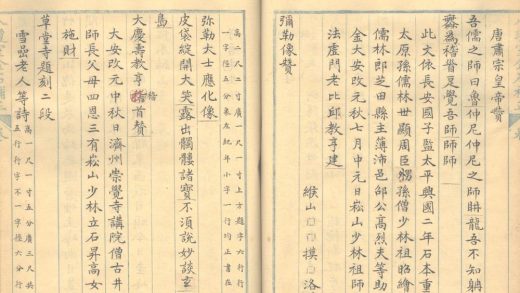 唐肅宗皇帝贊
吾儒之師曰魯仲尼仲尼之師聃龍吾不知聃
為稽首正覺吾師師師
此文依長安國子監太平興國二年石本重
太原孫儒林世顯周臣孫僧少林昭繪
儒林郎芝田縣主薄沛邑邵公高烈夫等助
金大安改元秋七月中元日崧山少林祖師
法虛門老比丘教亨建
緱山□□摸□洛
彌勒像贊
高二尺二寸廣一尺一寸上方題字六行行
一字徑五分象左紀年小字一行均正書在
彌勒大士應化像
皮袋綻開大笑露出髑髏諸寶不須說妙談玄
鳥
大慶壽教亨稽首贊
大安改元中秋日濟州崇覺寺講院僧古井
師長父母四恩三有崧山少林立石昇高女
施財
草堂寺題刻二段
雪嵒老人等詩
高一尺一寸五分廣三尺共
五行行字不一字徑六分行